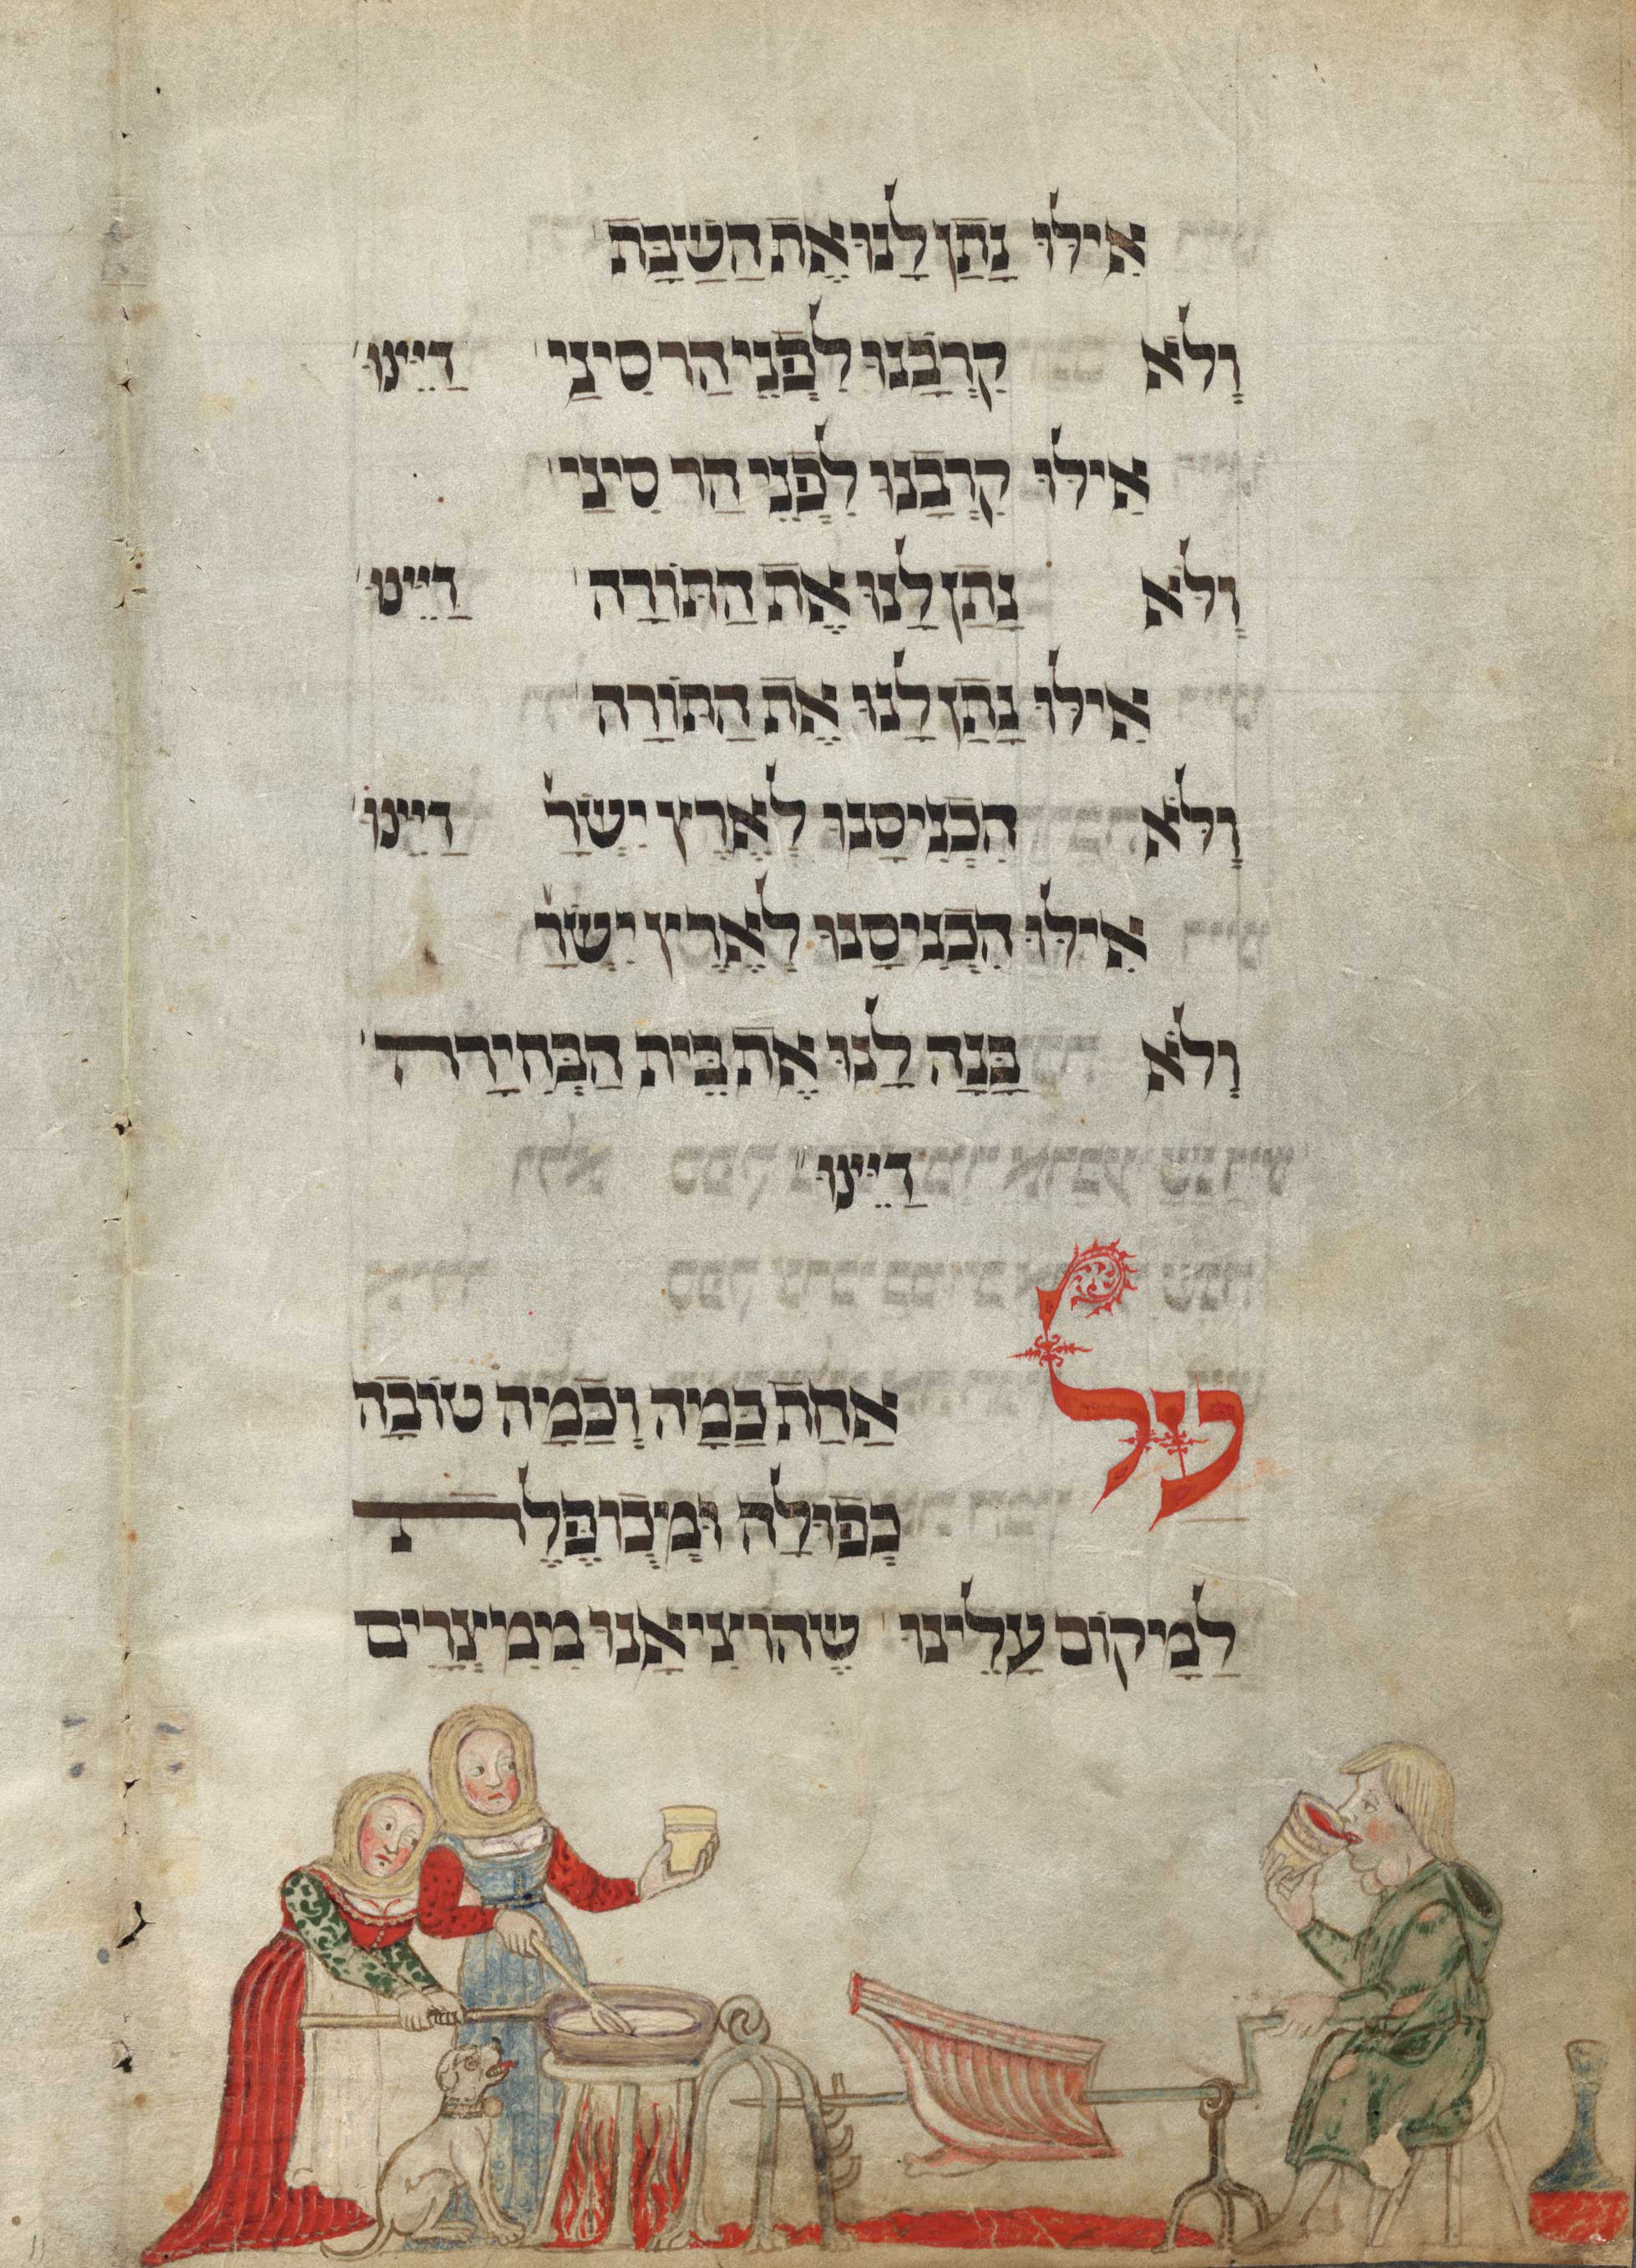 אִילּוּ נָתַן לָנוּ אֶת הַשַׁבָּת
וְלֹא קֵרְבָנוּ לִפְנֵי הַר סִינַי דַיֵּינוּ
אִילּוּ קֵרְבָנוּ לִפְנֵי הַר סִינַי
וְלֹא נָתַן לָנוּ אֶת הַתּוֹרָה דַיֵּינוּ
אִילּוּ נָתַן לָנוּ אֶת הַתּוֹרָה
וְלֹא הִכְנִיסָנוּ לְאֶרֶץ יִשְׂרָ דַיֵּינוּ
אִילּוּ הִכְנִיסָנוּ לְאֶרֶץ יִשְׂרָ
וְלֹא בָּנָה לָנוּ אֶת בֵּית הַבְּחִירָה
דַיֵּינוּ
עַל אַחַת כַּמָה וְכַמָה טוֹבָה
כְפוּלָה וּמְכוּפֶּלֶת
לַמָקוֹם עָלֵינוּ שֶׁהוֹצִיאָנוּ מִמִצְרַיִם